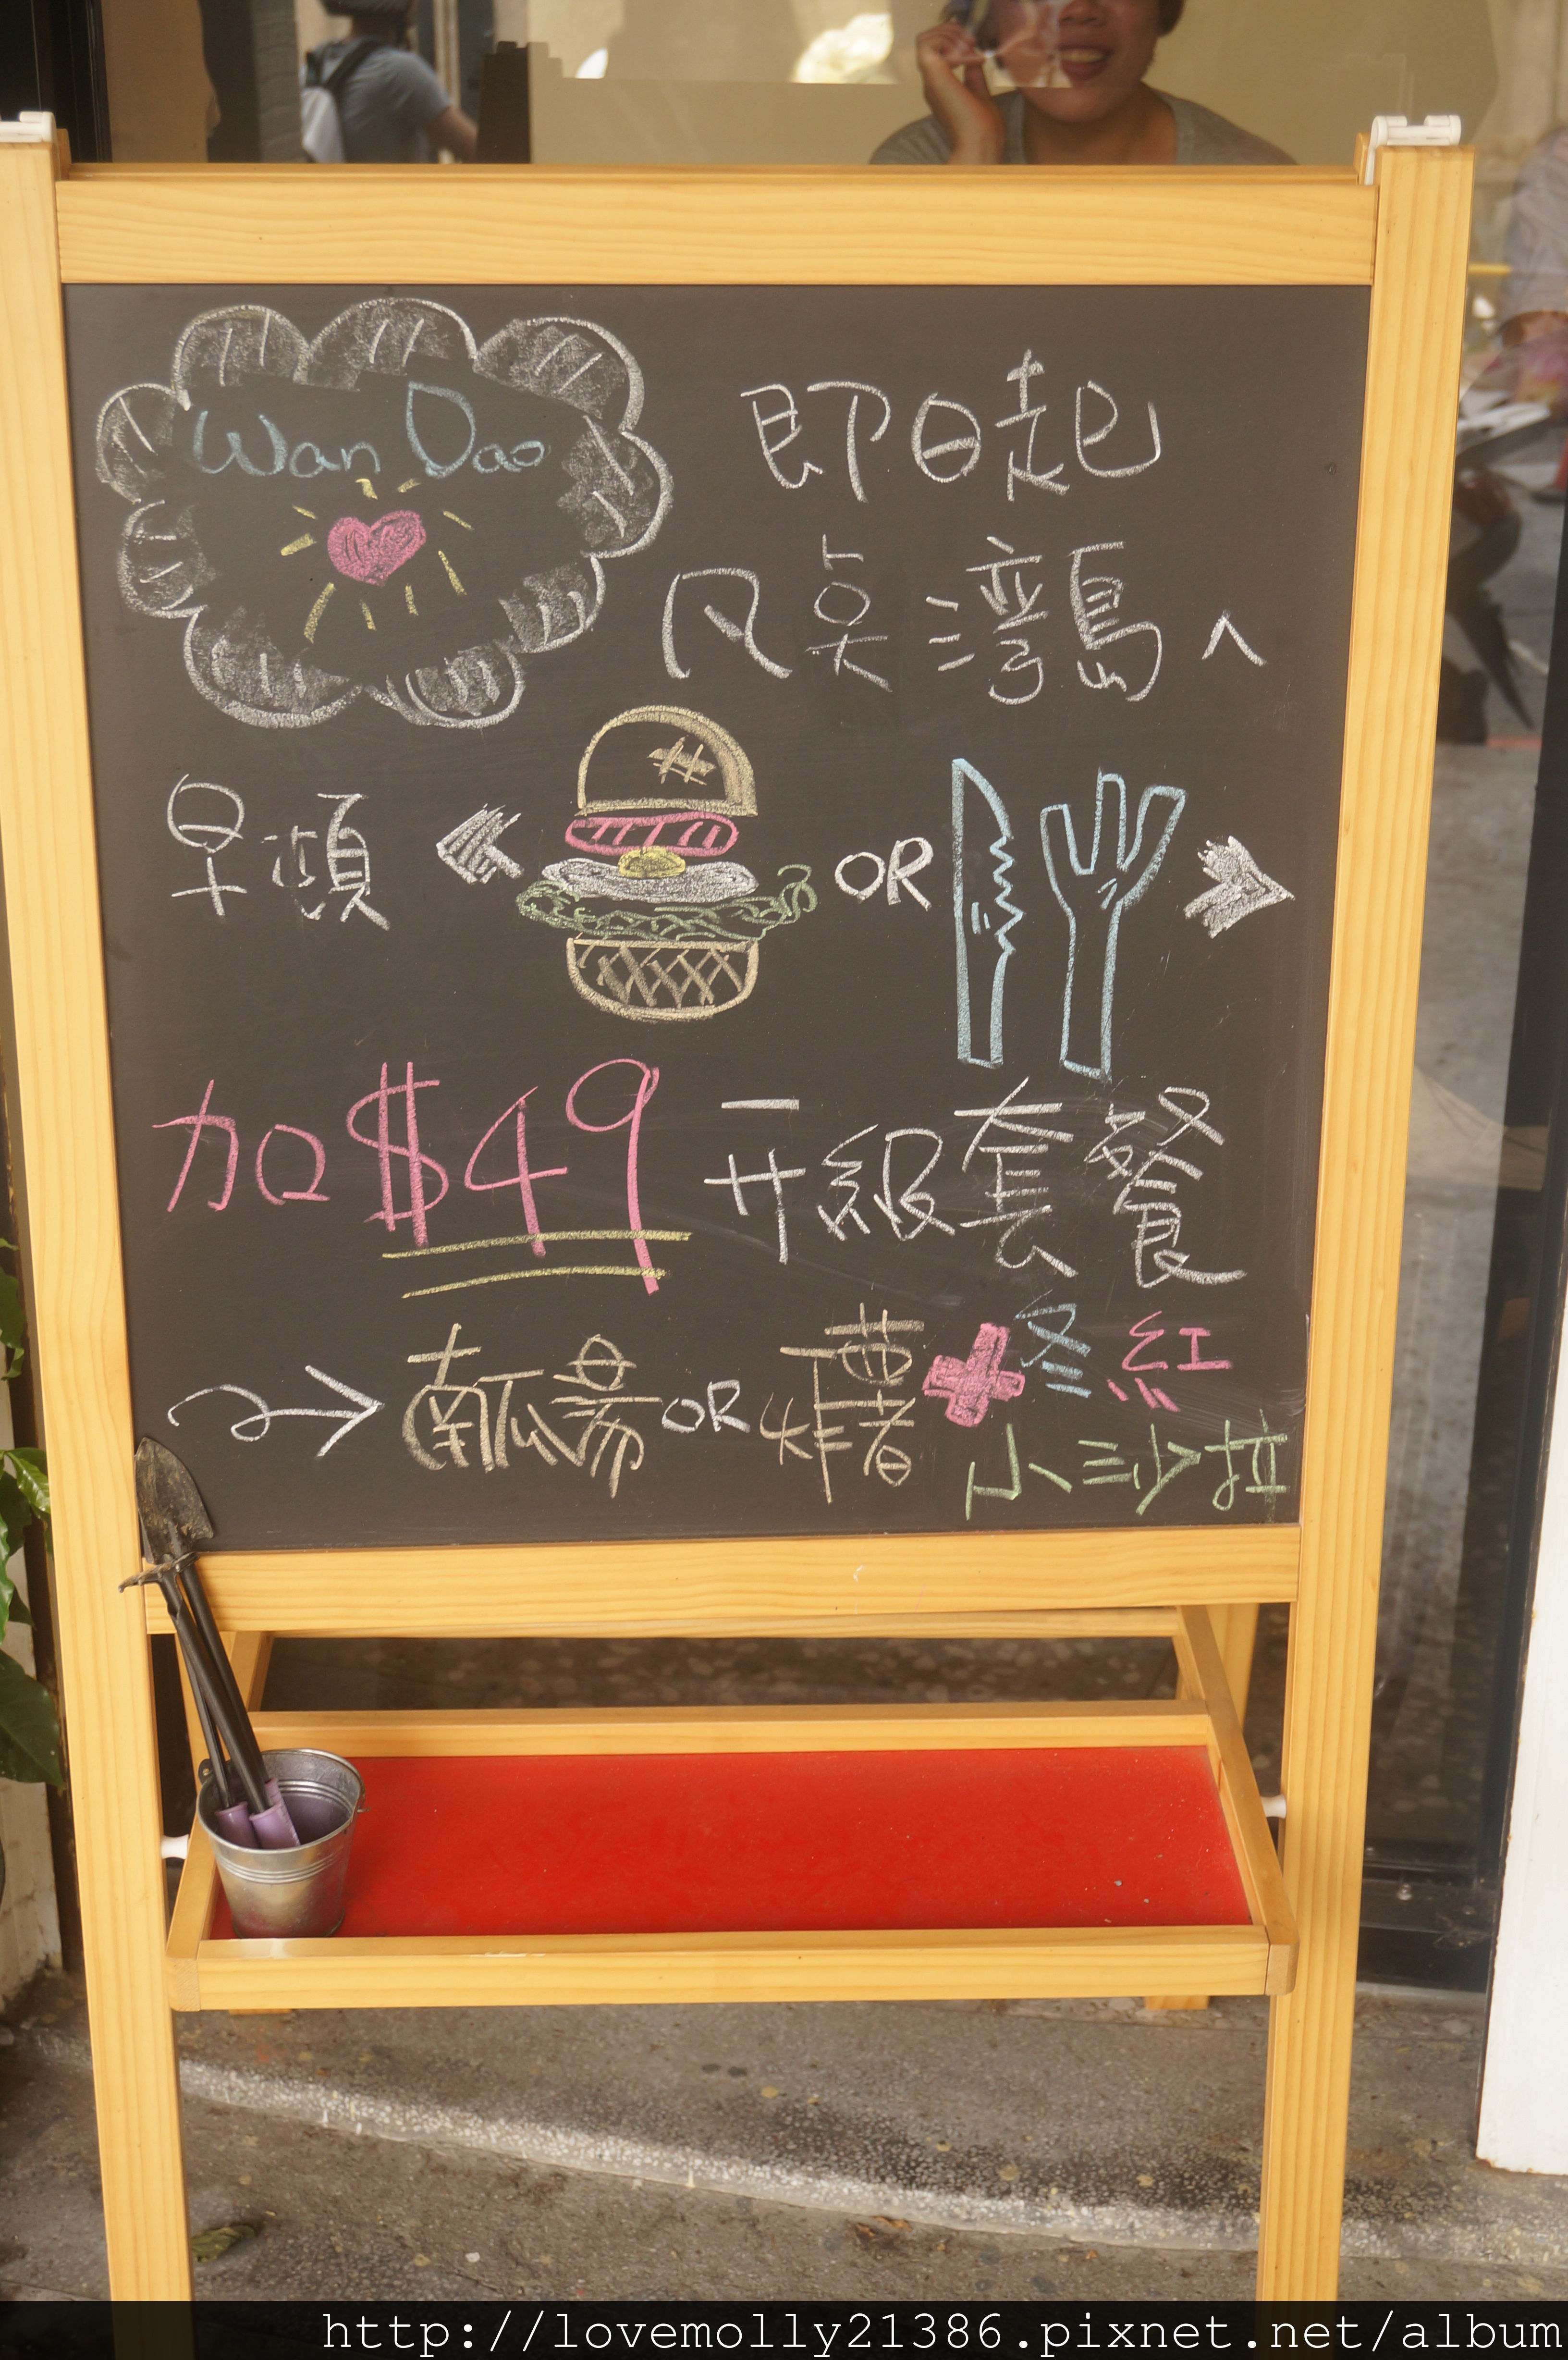 Wan Dao
即日起
凡奌湾島ㄟ
早頓 OR
加$49 升級套餐
南瓜湯 OR 炸薯 + 冬紅
小沙拉
http://lovemolly21386.pixnet.net/album